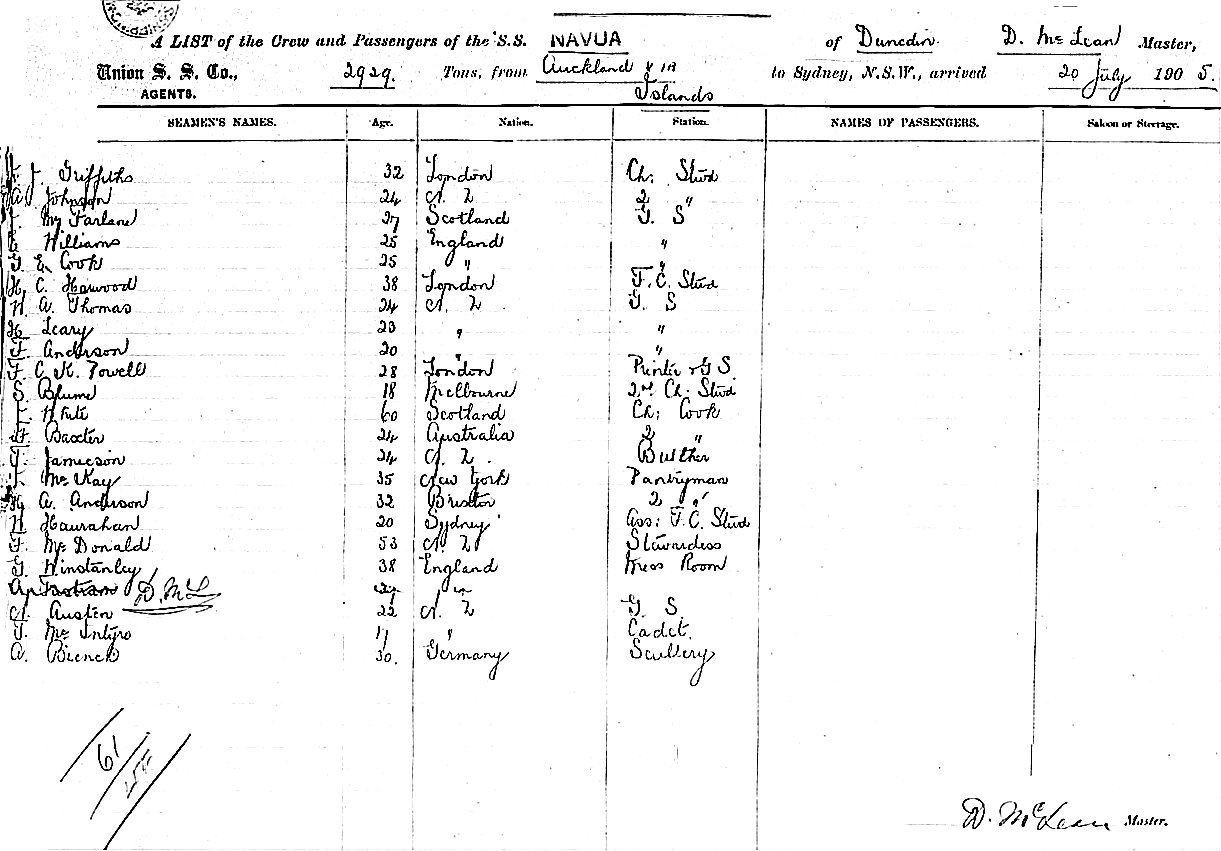 A LIST of the Crew and Passengers of the S.S. NAVUA of Dunedin. D. McLean Master,
Union S. S. Co., 2929. Tons, from Auckland & in Islands to Sydney, N.S.W., arrived 20 July 1905.
AGENTS.
SEAMEN'S NAMES. Age. Nation. Station. NAMES OF PASSENGERS. Saloon or Steerage.
J Griffiths 32 London Ch: Stwd
A Johnson 24 N. Z 2 "
Mc Farlane 27 Scotland G. S
Williams 25 England "
G E Cook 25 " "
H. C. Harwood 38 London F. C. Stwd
H. A. Thomas 24 N. Z. G. S
H Leary 23 " "
F Anderson 20 " "
F C K. Powell 28 London Printer & G S
S Blume 18 Melbourne 2nd Ch: Stwd
White 60 Scotland Ch: Cook
Baxter 24 Australia 2 "
J. Jamieson 24 N. Z. Butcher
Mc Kay 35 New York Pantryman
A. Anderson 32 Bristol 2 "
Hanrahan 20 Sydney Ass: F. C. Stwd
F. Mc Donald 53 N. Z Stewardess
G. Winstanley 38 England Mess Room
D. McL
A. Austen 22 N. Z G. S.
J. Mc Intyre 17 " Cadet.
A. 30. Germany Scullery
61
D. McLean Master.